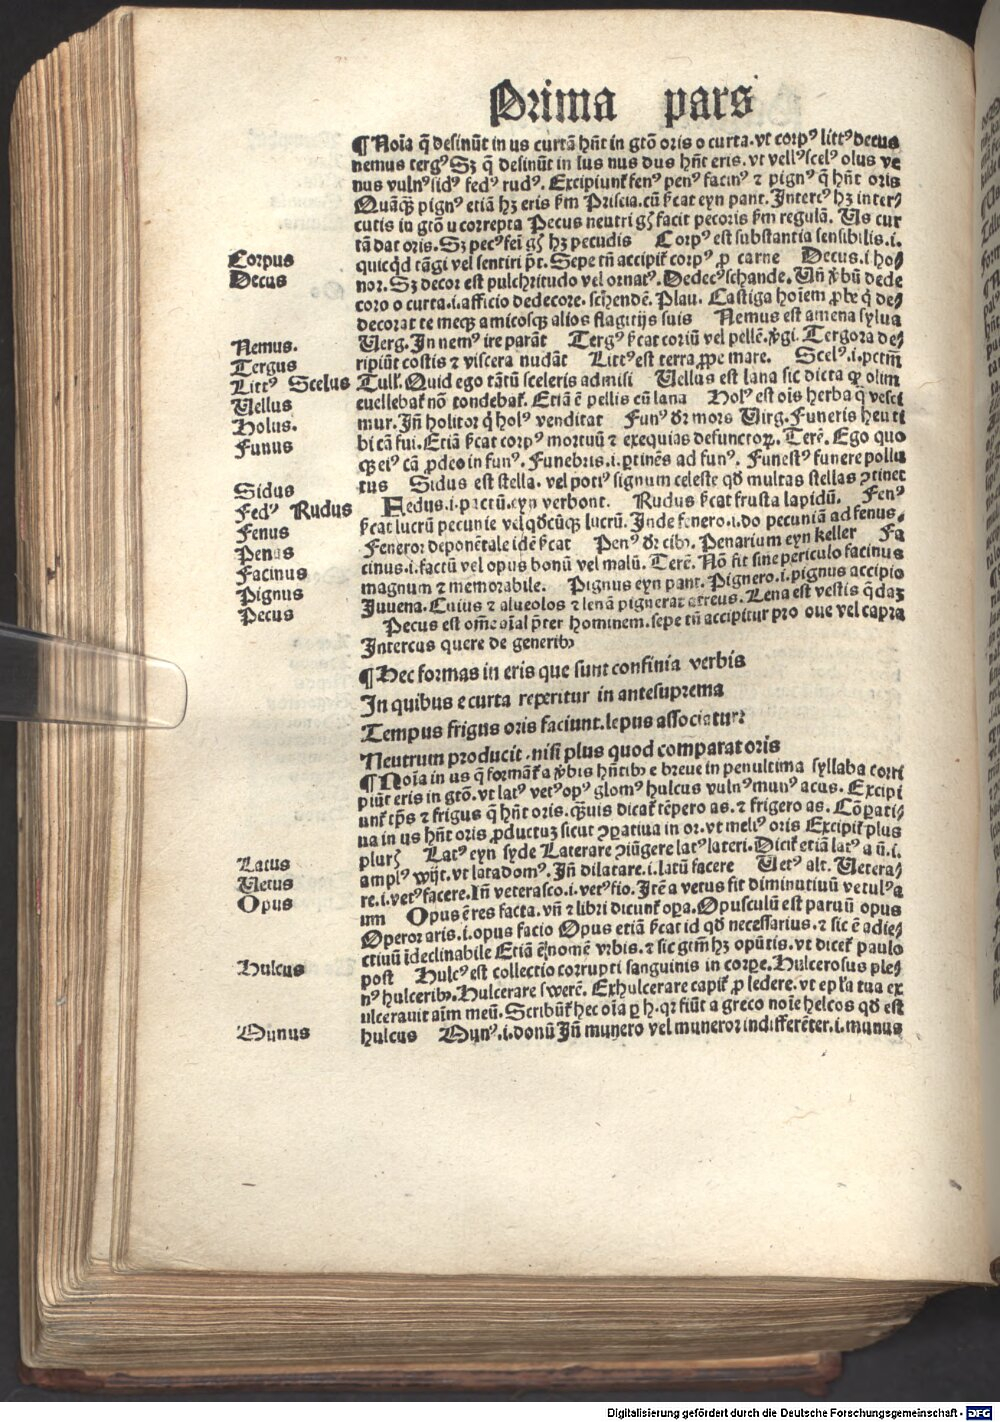 Prima pars
¶ Noīa q̄ desinūt in us curtā hn̄t in gtō oris o curta. vt corpꝰ littꝰ decus
nemus tergꝰ Sꝫ q̄ desinūt in lus nus dus hn̄t eris. vt vellꝰ scelꝰ olus ve
nus vulnꝰ sidꝰ fedꝰ rudꝰ. Excipiunt̄ fenꝰ penꝰ facinꝰ ⁊ pignꝰ q̄ hn̄t oris
Quāqꝫ pignꝰ etiā hꝫ eris ẜm Priscia. cū ẜcat eyn pant. Intercꝰ hꝫ inter⸗
cutis in gtō u correpta Pecus neutri gñ facit pecoris ẜm regulā. Us cur
tā dat oris. Sꝫ pecꝰ fei gñ hꝫ pecudis Corpꝰ est substantia sensibilis. i.
Corpus
quicqd tāgi vel sentiri pt. Sepe tn̄ accipit̄ corpꝰ ꝓ carne Decus. i ho⸗
Decus
nor. Sꝫ decor est pulchritudo vel ornatꝰ. Dedecꝰ schande. Un̄ ꝟbū dede
coro o curta. i. afficio dedecore. schendē. Plau. Castiga hoīem ꝓbe q̄ de⸗
decorat te meqꝫ amicosqꝫ alios flagitijs suis Nemus est amena sylua
Nemus.
Uerg. In nemꝰ ire parāt Tergꝰ ẜcat coriū vel pellē. ꝟgi. Tergora de⸗
Tergus
ripiūt costis ⁊ viscera nudāt Littꝰ est terra ꝓpe mare. Scelꝰ. i. pctm̄
Littꝰ Scelus
Tull. Quid ego tātū sceleris admisi Uellus est lana sic dicta qꝛ olim
Uellus
euellebat̄ nō tondebat̄. Etiā ē pellis cū lana Holꝰ est oīs herba q̄ vesci
Holus.
mur. Jn̄ holitor q̄ holꝰ venditat Funꝰ dr̄ mors Uirg. Funeris heu ti
Funus
bi cā fui. Etiā ẜcat corpꝰ mortuū ⁊ exequias defunctoꝝ. Terē. Ego quo
qꝫ eiꝰ cā ꝓdeo in funꝰ. Funebris. i. ꝑtinēs ad funꝰ. Funestꝰ funere pollu
tus Sidus est stella. vel potiꝰ signum celeste qd̄ multas stellas ꝯtinet
Sidus
Fedus. i. pactū. eyn verbont. Rudus ẜcat frusta lapidū. Fenꝰ
Fedꝰ Rudus
ẜcat lucrū pecunie vel qd̄cūqꝫ lucrū. Inde fenero. i. do pecuniā ad fenus.
Fenus
Feneror deponētale idē ẜcat Penꝰ dr̄ cibꝰ. Penarium eyn keller Fa
Penus
cinus. i. factū vel opus bonū vel malū. Terē. Nō fit sine periculo facinus
Facinus
magnum ⁊ memorabile. Pignus eyn pant. Pignero. i. pignus accipio
Pignus
Juuena. Cuius ⁊ alueolos ⁊ lenā pignerat atreus. Lena est vestis q̄daꝫ
Pecus
Pecus est om̄e aīal p̄ter hominem. sepe tn̄ accipitur pro oue vel capra
Intercus quere de generibꝫ
¶ Hec formas in eris que sunt confinia verbis
In quibus e curta reperitur in antesuprema
Tempus frigus oris faciunt. lepus associatur
Neutrum producit. nisi plus quod comparat oris
¶ Noīa in us q̄ format̄ a ꝟbis hn̄tibꝫ e breue in penultima syllaba corri
piūt eris in gtō. vt latꝰ vetꝰ opꝰ glomꝰ hulcus vulnꝰ munꝰ acus. Excipi
unt̄ tp̄s ⁊ frigus q̄ hn̄t oris. qꝫuis dicat̄ tēpero as. ⁊ frigero as. Cōꝑati⸗
ua in us hn̄t oris ꝓductuꝫ sicut ꝯꝑatiua in or. vt meliꝰ oris Excipit̄ plus
pluris Latꝰ eyn syde Laterare ꝯiūgere latꝰ lateri. Dicit̄ etiā latꝰ a ū. i.
Latus
amplꝰ wijt. vt lata domꝰ. Jn̄ dilatare. i. latū facere Uetꝰ alt. Uetera⸗
Uetus
re. i. vetꝰ facere. In̄ veterasco. i. vetꝰ fio. Itē a vetus fit diminutiuū vetulꝰ a
Opus
um Opus ē res facta. vn̄ ⁊ libri dicunt̄ oꝑa. Opusculū est paruū opus
Operor aris. i. opus facio Opus etiā ẜcat id qd̄ necessarius. ⁊ sic ē adie⸗
ctiuū īdeclinabile Etiā ē nomē vrbis. ⁊ sic gtm̄ hꝫ opūtis. vt dicet̄ paulo
Hulcus
post Hulcꝰ est collectio corrupti sanguinis in corꝑe. Hulcerosus ple⸗
nꝰ hulceribꝫ. Hulcerare swerē. Exhulcerare capit̄ ꝓ ledere. vt epl̄a tua ex
ulcerauit aīm meū. Scribūt̄ hec oīa ꝑ h. qꝛ fiūt a greco noīe helcos qd̄ est
Munus
hulcus Munꝰ. i. donū Jn̄ munero vel muneror indifferēter. i. munus
Digitalisierung gefördert durch die Deutsche Forschungsgemeinschaft - DFG